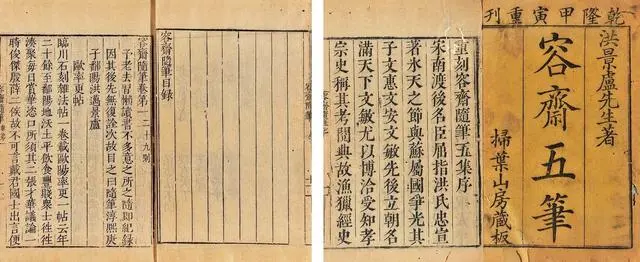 乾隆甲寅重刊
洪景盧先生著
容齋五筆
掃葉山房藏板
重刻容齋隨筆五集序
宋南渡後名臣屈指洪氏忠宣
著氷天之節與蘇屬國爭光其
子文惠文安文敏先後立朝名
滿天下文敏尤以博洽受知孝
宗史稱其考閱典故漁獵經史
容齋隨筆目録
容齋隨筆卷第一 二十九則
予老去習懶讀書不多意之所之隨即紀錄
因其後先無復詮次故目之曰隨筆淳熙庚
子鄱陽洪邁景盧
歐率更帖
臨川石刻雜法帖一卷載歐陽率更一帖云年
二十餘至鄱陽地沃土平飲食豐賤衆士往往
湊聚每日賞華恣口所須其二張才華議論一
時俊傑殷薛二侯故不可言戴君國士出言便